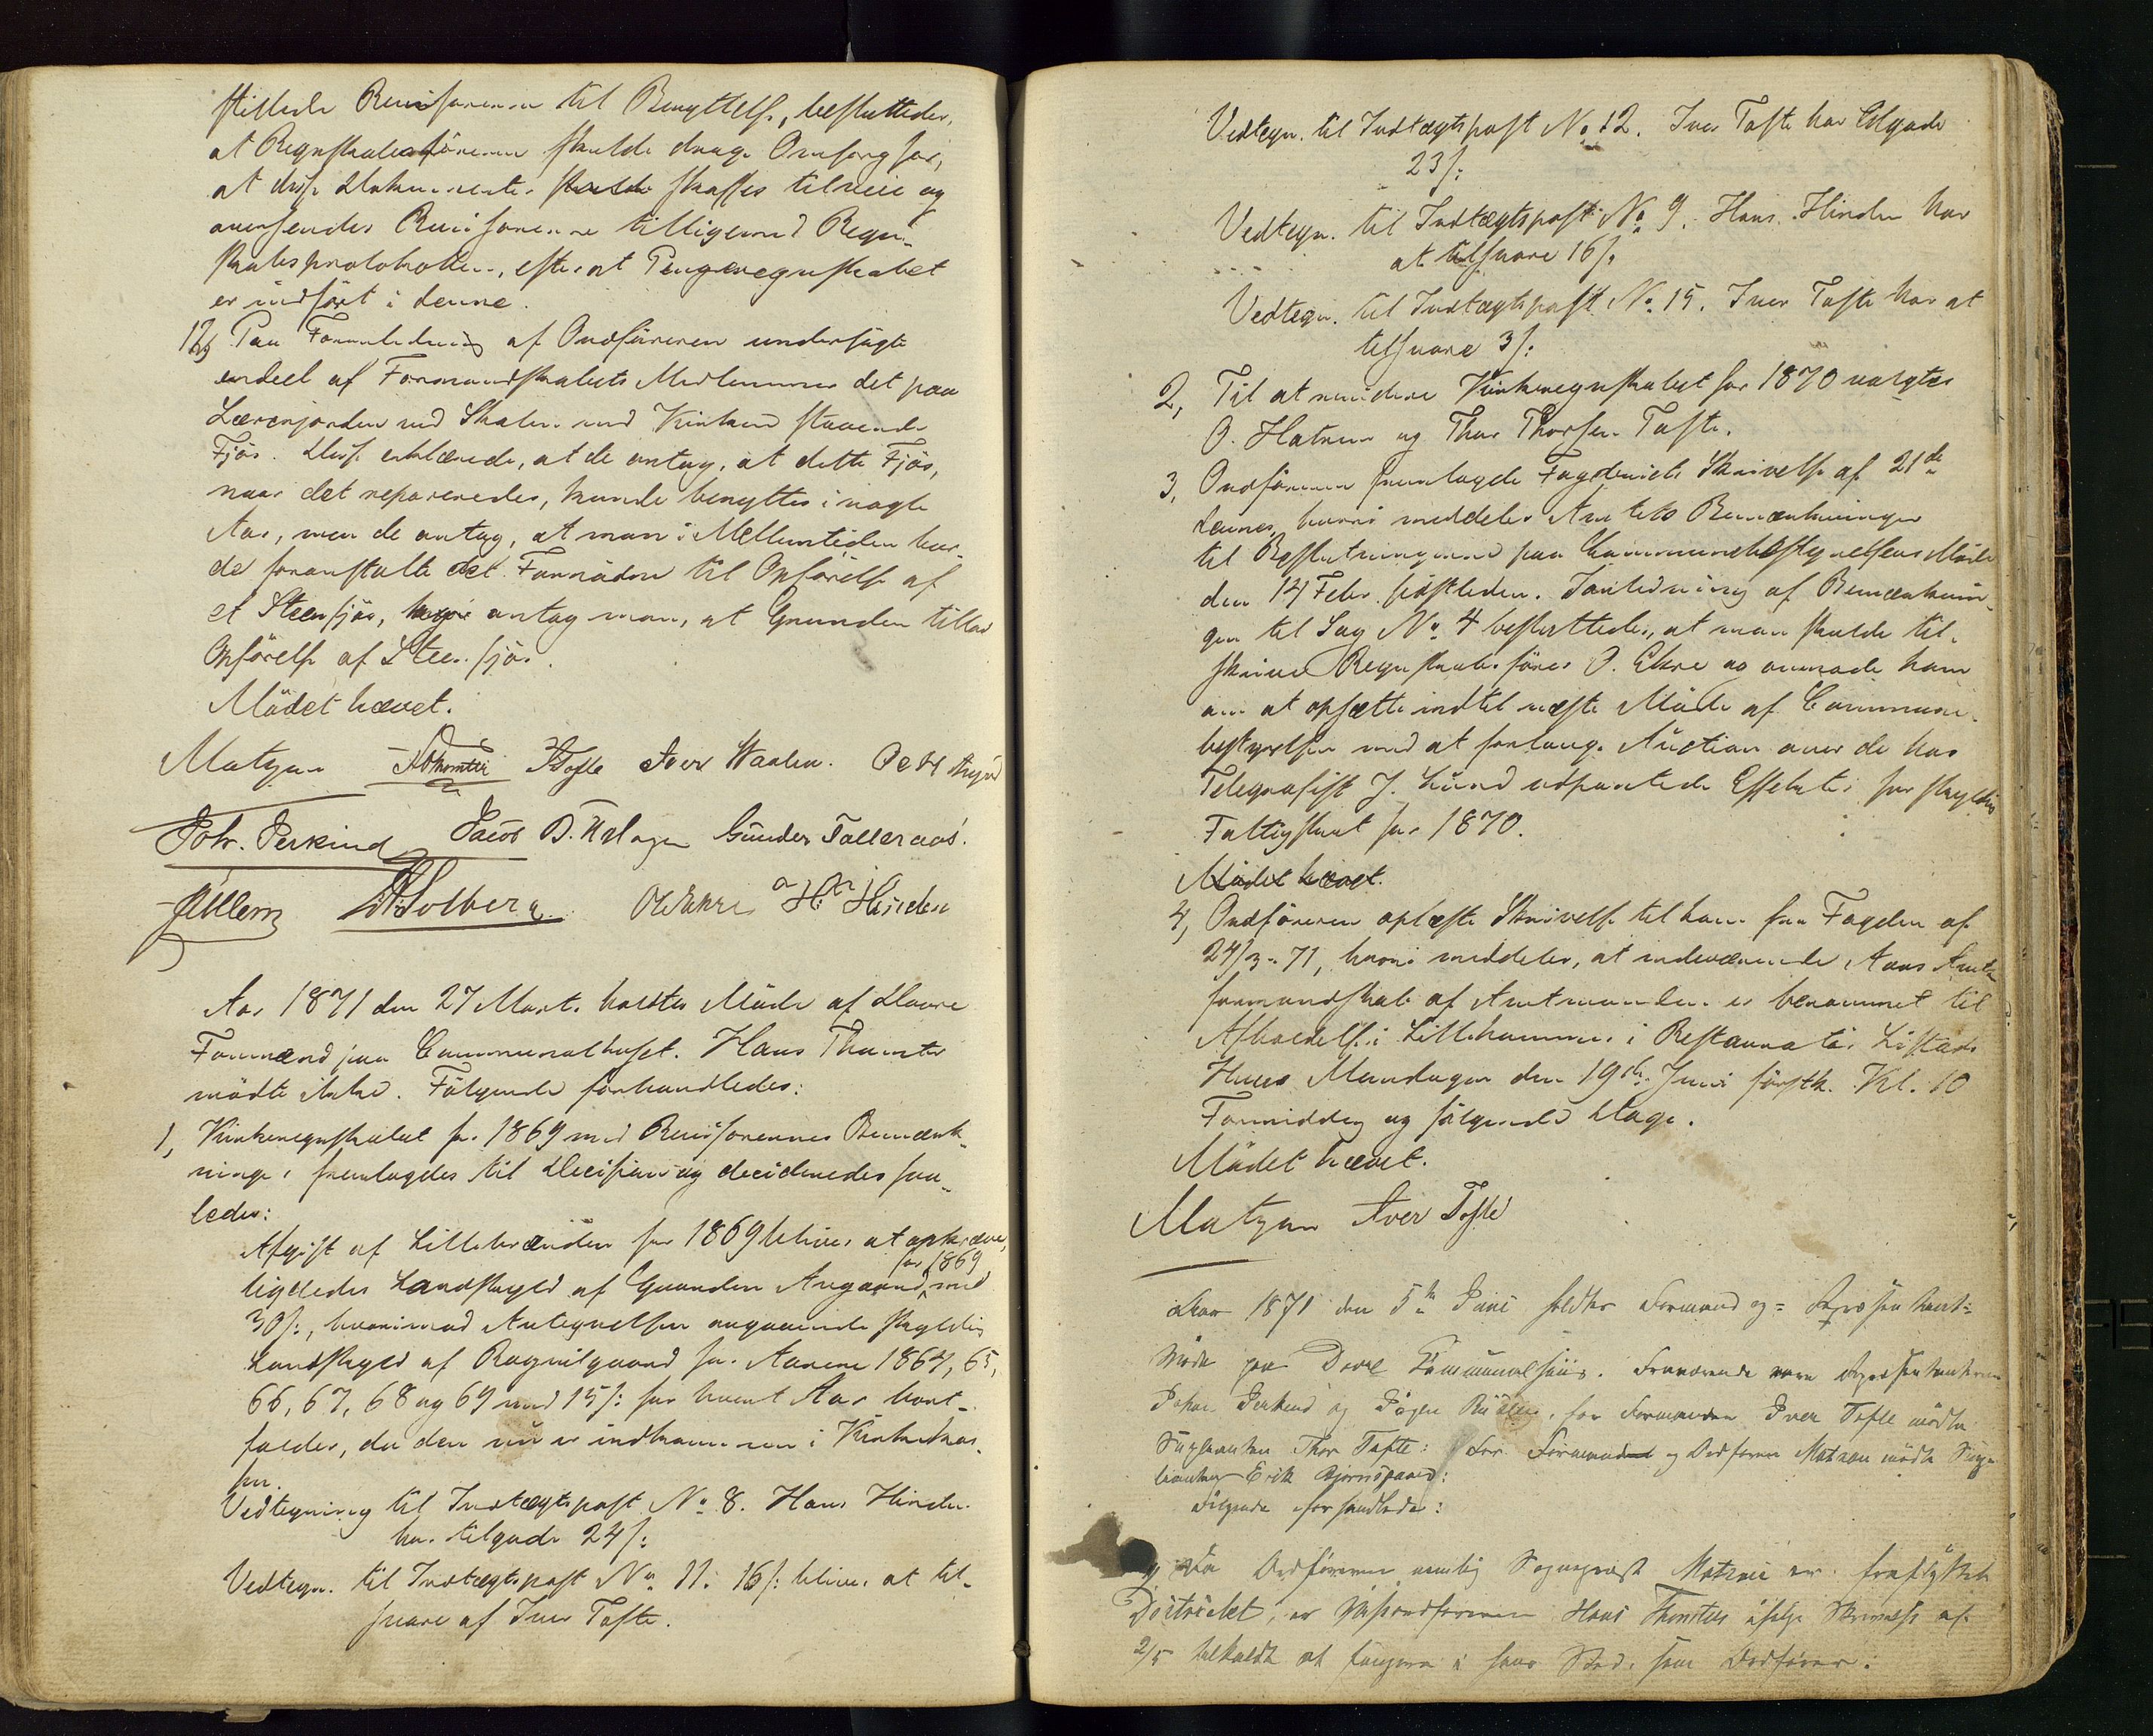 stillede Revisorerne til Benyttelse, besluttedes,
at Regnskabsføreren skulde drage Omsorg for,
at disse Dokumenter skulde skaffes tilveie og
oversendes Revisorerne tilligemed Regn-
skabsprotokollen, efterat Pengeregnskabet
er indført i denne.
12, Paa Foranledning af Ordføreren undersøgte
endeel af Formandskabets Medlemmer det paa
Lærerjorden ved Skolen ved Kirken staaende
Fjøs. Disse erklærede, at de antog, at dette Fjøs,
naar det repareredes, kunde benyttes i nogle
Aar, men de antog, at man i Mellemtiden bur-
de foranstalte det Fornødne til Opførelse af
et Steenfjøs, antog man, at Grunden tillod
Opførelse af Steenfjøs.
Mødet hævet.
Matzau HThomter ITofte Iver Waalen.
Joh. Jerkind Jacob D. Gunder Talleraas.
Jillem Solberg OlEkre H. Hinden
Aar 1871 den 27 Marts holdtes Møde af Dovre
Formænd paa Communalhuset. Hans Thomter
mødte ikke. Følgende forhandledes:
1, Kirkeregnskabet for 1869 med Revisorernes Bemærk-
ninger fremlagdes til Decision og decideredes saa-
ledes:
Afgift af Lillebrænden for 1869 bliver at opkræve,
for 1869
ligeledes Landskyld af Gaarden Angaard, med
30 s:, hvorimod Antegnelsen angaaende skyldig
Landskyld af Ragnilgaard for Aarene 1864, 65,
66, 67, 68 og 69 med 15 s: for hvert Aar bort-
falder, da den nu er indkommen i Kirkekas-
sen.
Vedtegning til Indtægtspost No 8. Hans Hinden
har tilgode 24 s:
Vedtegn. til Indtægtspost No 11. 16 s: bliver at til-
svare af Iver Tofte.
Vedtegn. til Indtægtspost No 12. Iver Tofte har tilgode
23 s:
Vedtegn. til Indtægtspost No 9. Hans Hinden har
at tilsvare 16 s.
Vedtegn. til Indtægtspost No 15. Iver Tofte har at
tilsvare 3 s:
2, Til at revidere Kirkeregnskabet for 1870 valgtes
O. Hatrem og Thor Thorsen Tofte.
3, Ordføreren fremlagde Fogderiets Skrivelse af 21de
dennes, hvori meddeles Amtets Bemærkninger
til Beslutningerne paa Communebestyrelsens Møde
den 14 Febr. sidstleden. I anledning af Bemærknin-
gen til Sag No 4 besluttedes, at man skulde til-
skrive Regnskabsfører O. Ekre og anmode ham
om at opsætte indtil næste Møde af Commune-
bestyrelsen med at forlange Auction over de hos
Telegrafist J. Lund udpantede Effekter for skyldig
Fattigskat for 1870.
Mødet hævet.
4, Ordføreren oplæste Skrivelse til ham fra Fogden af
24/3-71, hvori meddeles, at indeværende Aars Amts-
formandskab af Amtmanden er berammet til
Afholdelse i Lillehammer i Restauratør Listads
Huus Mandagen den 19de Juni førstk. Kl. 10
Formiddag og følgende Dage.
Mødet hævet.
Matzau Iver Tofte
Aar 1871 den 5te Juni holdtes Formand og= Repræsentant-
Møde paa Dovre Kommunalhuus. Fraværende vare Repræsentanterne
Johan Jerkind og Jögen, for Formanden Iver Tofte mødte
Suppleanten Thor Tofte: For Formand og Ordfører Matzau mødte Sup-
leanten Erik Bjørnsgaard:
Følgende forhandledes:
1, Da Ordføreren nemlig Sogneprest Matzau er fraflyttet
Distriktet, er Viseordføreren Hans Thomter ifølge Skrivelse af
2/5 tilkaldt at fungere i hans Sted, som Ordfører: